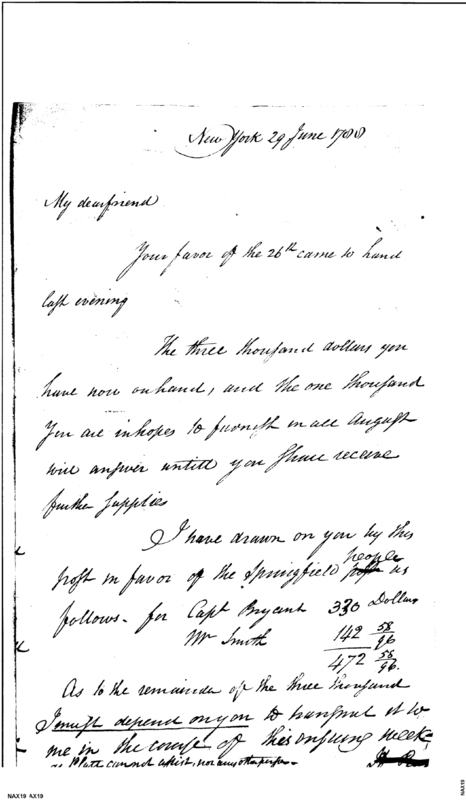 New York 29 June 1788
My dear friend
Your favor of the 26th came to hand
last evening
The three thousand dollars you
have now on hand, and the one thousand
You are in hopes to furnish in all August
will answer untill you shall receive
further supplies
I have drawn on you by this
post in favor of the Springfield people as
follows - for Capt Bryant 330 Dollars
Mr Smith 142 58/96
472 58/96
As to the remainder of the three thousand
I must depend on you to transmit it to
me in the course of this ensuing week,
as Platt cannot assist, nor any other person -
NAX19 AX19
NAX19